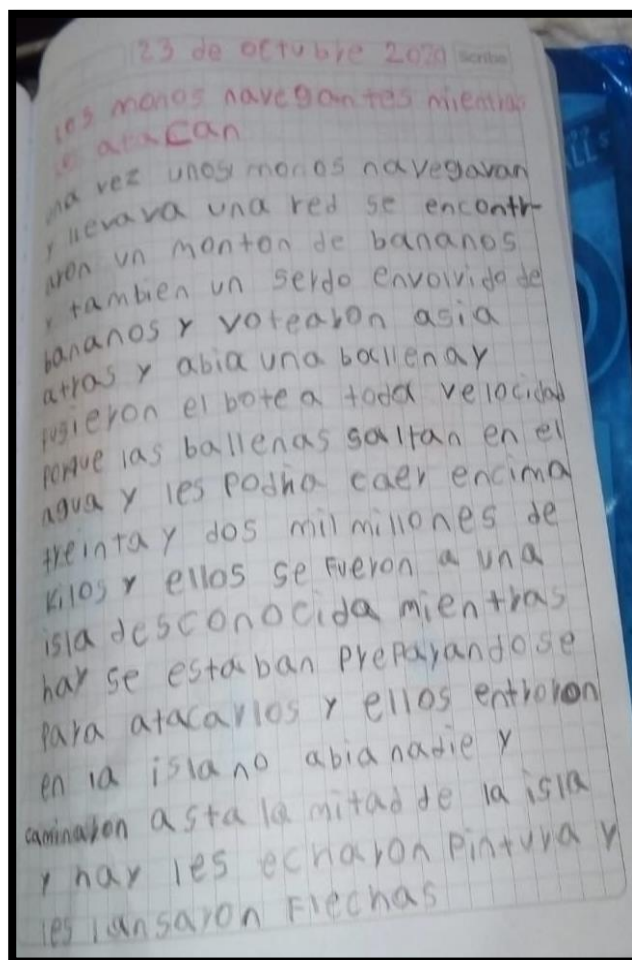 23 de octubre 2020 scribe
los monos navegantes mientras
atacan
una vez unos monos navegavan
y llevava una red se encontr-
aron un monton de bananos
y tambien un serdo envolvido de
bananos y votearon asia
atras y abia una ballena y
rugieron el bote a toda velocidad
porque las ballenas saltan en el
agua y les podria caer encima
treinta y dos mil millones de
kilos y ellos se fueron a una
isla desconocida mientras
hay se estaban preparandose
para atacarlos y ellos entroron
en la isla no abia nadie y
caminaron asta la mitad de la isla
y hay les echaron pintura y
les lansaron Flechas
ALLS